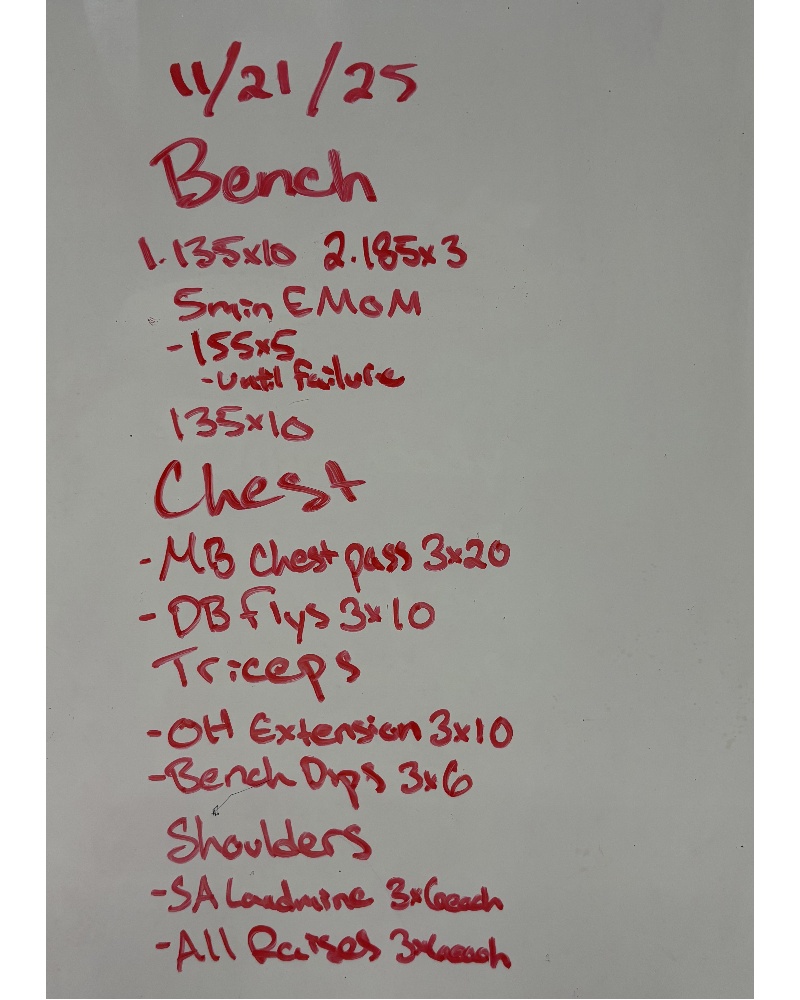 11/21/25
Bench
1.135x10 2.185x3
5min EMOM
-155x5
-until failure
135x10
Chest
-MB Chest pass 3x20
-DB flys 3x10
Triceps
-OH Extension 3x10
-Bench Dips 3x6
Shoulders
-SA Landmine 3x6each
-All Raises 3x6each